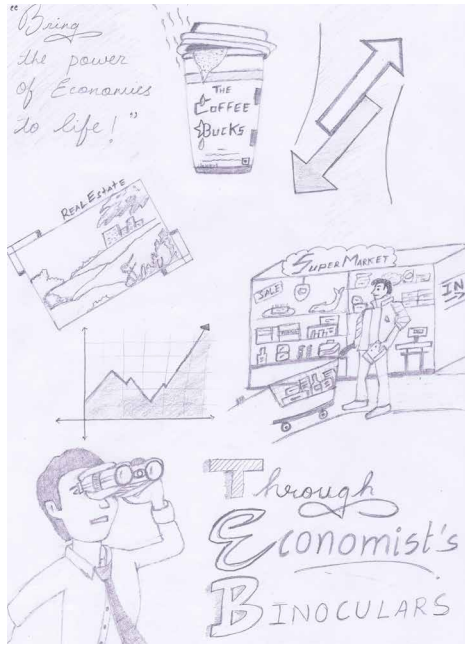 "Bring
the power
of Economics
to life!"
THE
COFFEE
BUCKS
REAL ESTATE
SUPER MARKET
SALE
IN
Through
Economist's
BINOCULARS